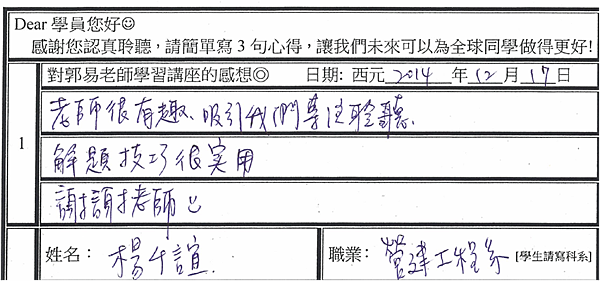 Dear 學員您好☺
感謝您認真聆聽，請簡單寫 3 句心得，讓我們未來可以為全球同學做得更好!
1
對郭易老師學習講座的感想◎ 日期: 西元 2014 年 12 月 17 日
老師很有趣、吸引我們專注聆聽.
解題技巧很實用
謝謝老師☺
姓名： 楊千誼. 職業： 營建工程系 [學生請寫科系]